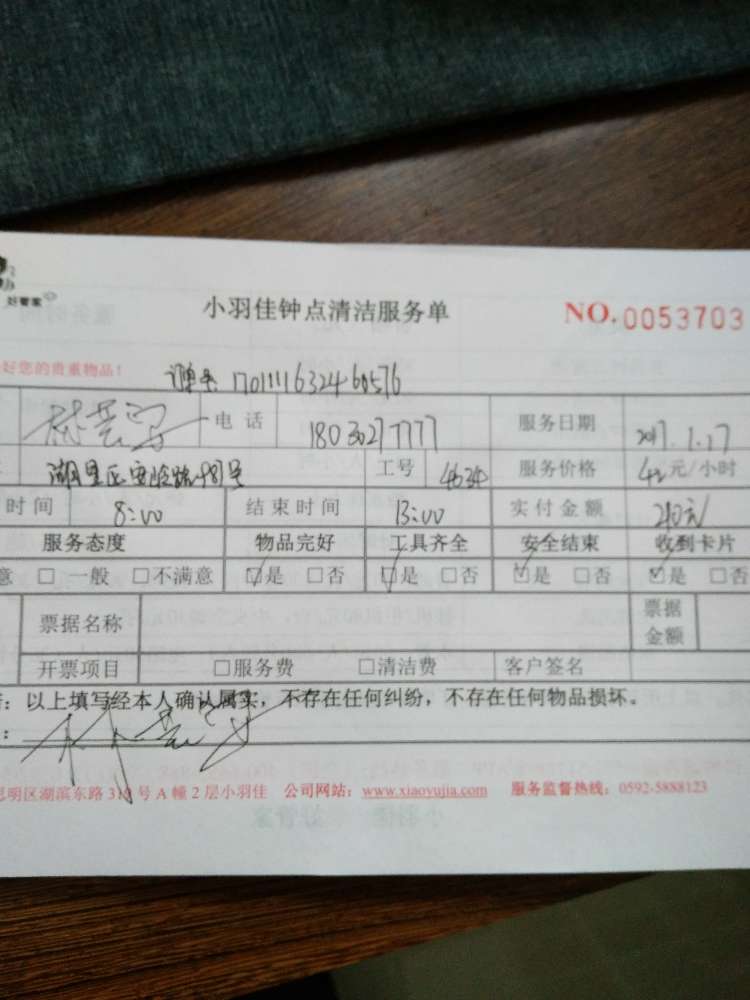 好管家
小羽佳钟点清洁服务单 NO.0053703
好您的贵重物品! 订单号 1701111632460576
电话 18030277777 服务日期 2017.1.17
湖里区 98号 工号 4634 服务价格 42元/小时
时间 8:00 结束时间 13:00 实付金额 210元
服务态度 物品完好 工具齐全 安全结束 收到卡片
意 □一般 □不满意 ☑是 □否 ☑是 □否 ☑是 □否 ☑是 □否
票据名称 票据金额
开票项目 □服务费 □清洁费 客户签名
:以上填写经本人确认属实,不存在任何纠纷,不存在任何物品损坏。
:
思明区湖滨东路319号A幢2层小羽佳 公司网站:www.xiaoyujia.com 服务监督热线:0592-5888123